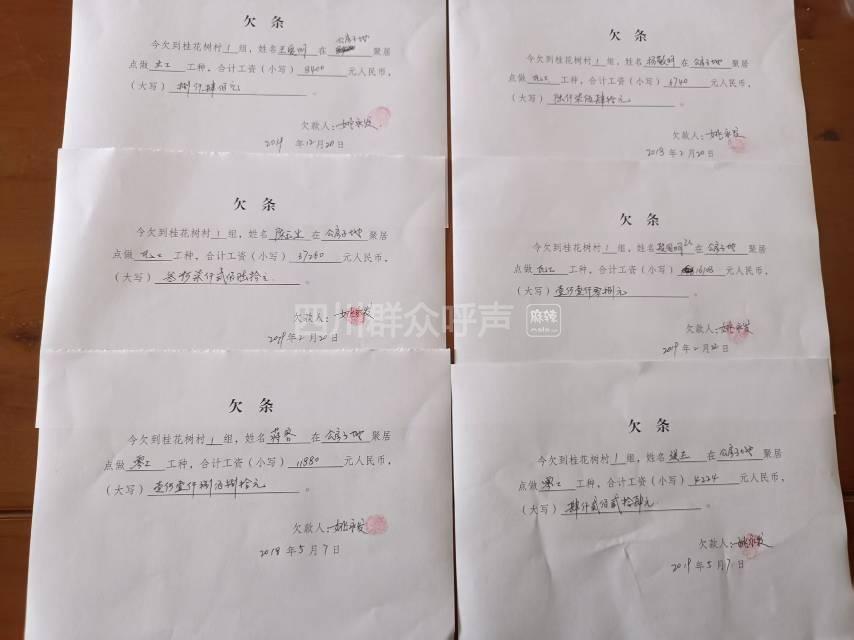 欠条
今欠到桂花树村1组，姓名 在 公房子坝 聚居
点做 土工 工种，合计工资（小写）8400 元人民币，
（大写）捌仟肆佰元。
欠款人：姚永发
2019年12月20日
欠条
今欠到桂花树村1组，姓名 在 公房子坝 聚居
点做 瓦工 工种，合计工资（小写）6740 元人民币，
（大写）陆仟柒佰肆拾元。
欠款人：姚永发
2018年2月20日
欠条
今欠到桂花树村1组，姓名 在 公房子坝 聚居
点做 瓦工 工种，合计工资（小写）37260 元人民币，
（大写）叁万柒仟贰佰陆拾元。
欠款人：姚永发
2019年2月20日
欠条
今欠到桂花树村1组，姓名 在 公房子坝 聚居
点做 瓦工 工种，合计工资（小写） 元人民币，
（大写）
欠款人：姚永发
2019年2月20日
四川群众呼声
麻辣
mala.cn
欠条
今欠到桂花树村1组，姓名 蒋容 在 公房子坝 聚居
点做 零工 工种，合计工资（小写）11880 元人民币，
（大写）壹万壹仟捌佰捌拾元。
欠款人：姚永发
2018年5月7日
欠条
今欠到桂花树村1组，姓名 在 公房子坝 聚居
点做 零工 工种，合计工资（小写）4224 元人民币，
（大写）肆仟贰佰贰拾肆元。
欠款人：姚永发
2019年5月7日